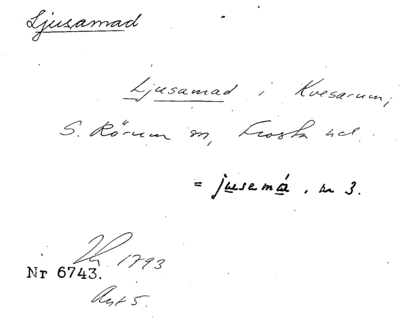 Ljusamad
Ljusamad i Kvesarum,
S. Rörum sn, Frosta hd.
= jusemá, m 3.
1793
Nr 6743.
Ant 5.